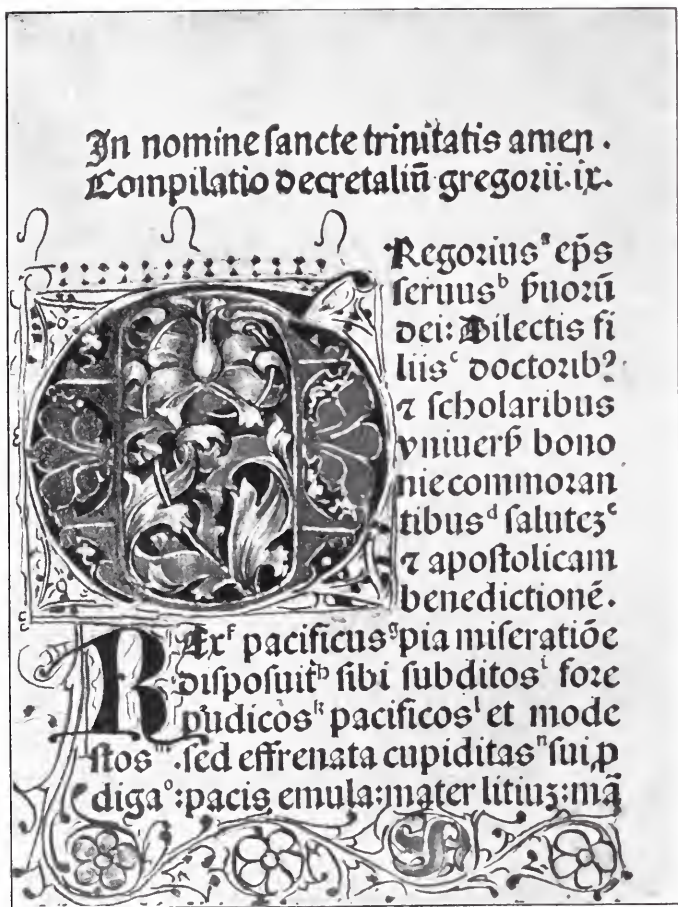 In nomine ſancte trinitatis amen .
Compilatio decꝛetaliū gregoꝛii.ix.
Regoꝛius a ep̄s
ſeruus b ſ̄uoꝛū
dei: Dilectis fi
liis c doctoꝛibꝰ
⁊ ſcholaribus
vniuerſ̄ bono
nie commoꝛan
tibus d ſaluteꝫ e
⁊ apoſtolicam
benedictionē.
REx f pacificus g pia miſeratiōe
diſpoſuit h ſibi ſubditos i foꝛe
pudicos k pacificos l et mode
ſtos m .ſed effrenata cupiditas n ſui ꝓ
diga o :pacis emula:mater litiuꝫ:mā